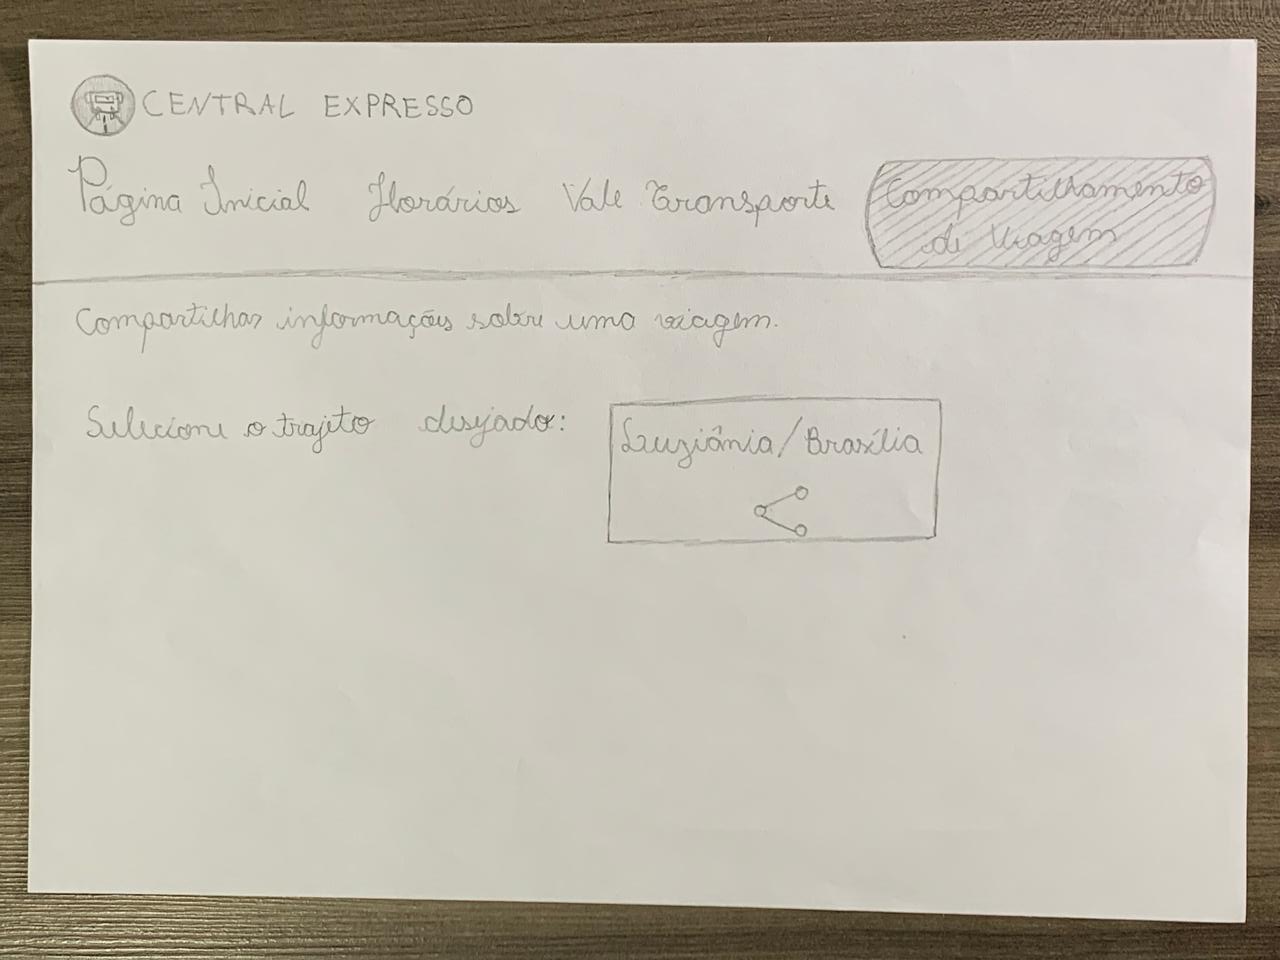 CENTRAL EXPRESSO
Página Inicial Horários Vale Transporte Compartilhamento
de Viagem
Compartilhar informações sobre uma viagem.
Selecione o trajeto desejado: Luziânia/Brasília